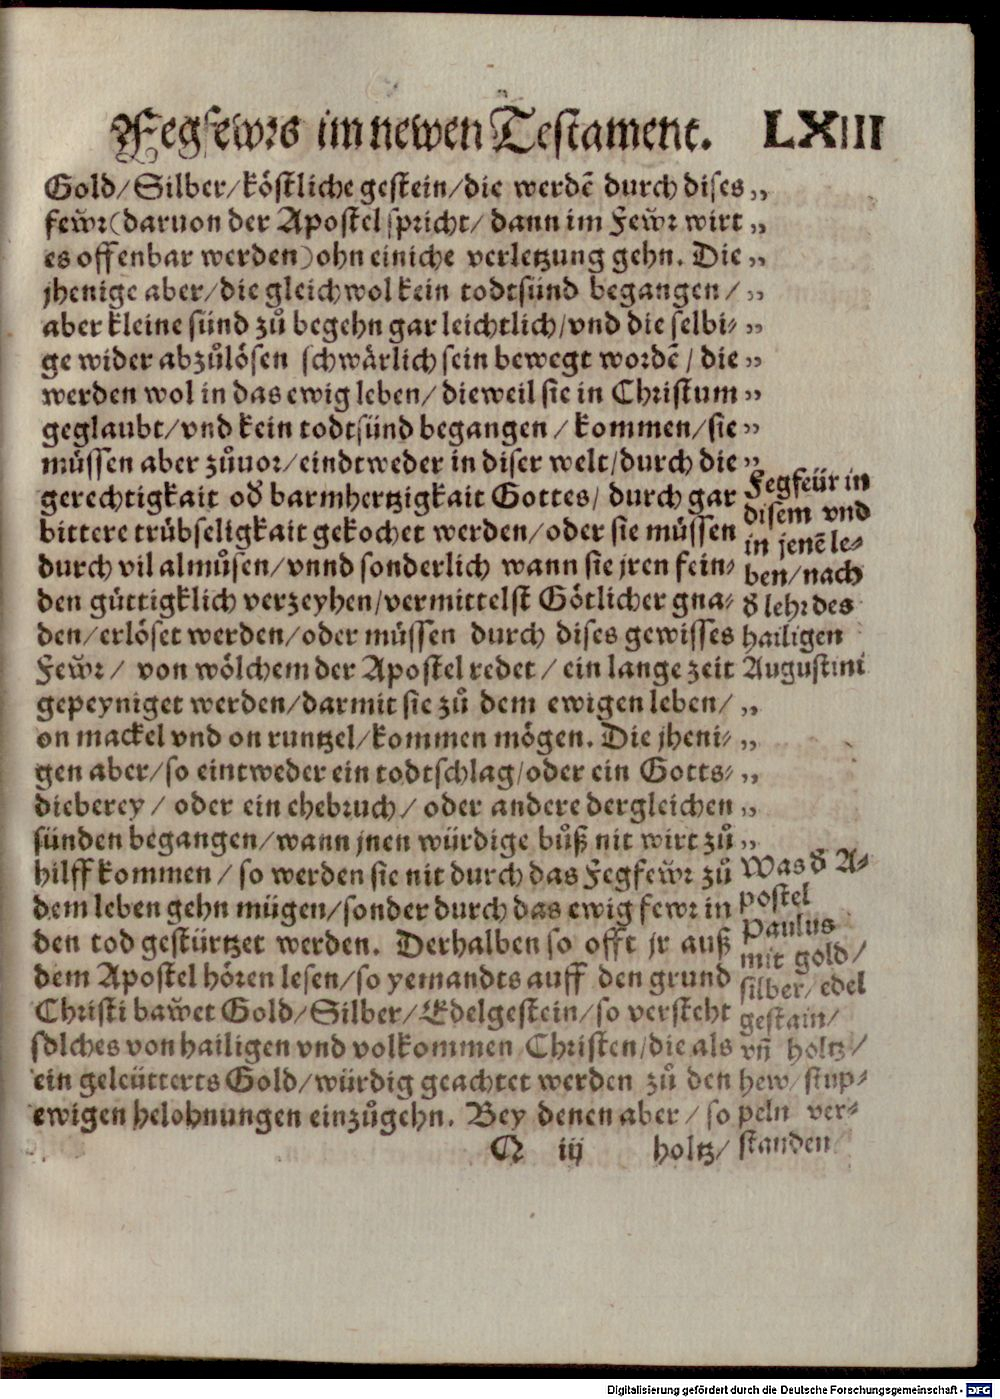 Fegfewrs im newen Testament. LXIIII
Gold/Silber/köstliche gestein/die werdẽ durch dises „
few̃r(daruon der Apostel spricht/ dann im Few̃r wirt „
es offenbar werden)ohn einiche verletzung gehn. Die „
jhenige aber/die gleichwol kein todtsünd begangen/ „
aber kleine sünd zů begehn gar leichtlich/vnd die selbi⸗ „
ge wider abzůlösen schwärlich sein bewegt wordẽ/ die „
werden wol in das ewig leben/ dieweil sie in Christum „
geglaubt/vnd kein todtsünd begangen/ kommen/sie „
müssen aber zůuor/eindtweder in diser welt/durch die „
gerechtigkait od̃ barmhertzigkait Gottes/ durch gar
bittere trübseligkait gekochet werden/ oder sie müssen
durch vil almůsen/vnnd sonderlich wann sie jren fein⸗
den güttigklich verzeyhen/vermittelst Götlicher gna⸗
den/erlöset werden/oder müssen durch dises gewisses
Few̃r/ von wölchem der Apostel redet/ ein lange zeit
gepeyniget werden/darmit sie zů dem ewigen leben/ „
on mackel vnd on runtzel/kommen mögen. Die jheni⸗ „
gen aber/so eintweder ein todtschlag/oder ein Gotts⸗ „
dieberey/ oder ein ehebruch/ oder andere dergleichen „
sünden begangen/wann jnen würdige bůß nit wirt zů „
hilff kommen/ so werden sie nit durch das Fegfew̃r zů
dem leben gehn mügen/sonder durch das ewig fewr in
den tod gestürtzet werden. Derhalben so offt jr auß
dem Apostel hören lesen/so yemandts auff den grund
Christi baw̃et Gold/Silber/Edelgestein/so versteht
solches von hailigen vnd volkommen Christen/die als
ein geleütterts Gold/würdig geachtet werden zů den
ewigen belohnungen einzůgehn. Bey denen aber/ so
Q iij holtz/
Fegfeür in
disem vnd
in jenẽ le⸗
ben/nach
d̃ lehr des
hailigen
Augustini
Was d̃ A⸗
postel
Paulus
mit gold/
silber/edel
gestain/
vñ holtz/
hew/stup⸗
peln ver⸗
standen
Digitalisierung gefördert durch die Deutsche Forschungsgemeinschaft - DFG